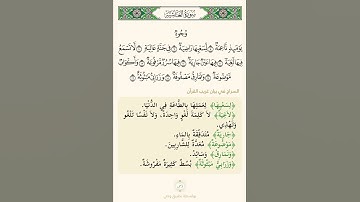 سورة الغاشية
وجوه
يومئذ ناعمة ۝ لسعيها راضية ۝ في جنة عالية ۝ لا تسمع
فيها لاغية ۝ فيها عين جارية ۝ فيها سرر مرفوعة ۝ وأكواب
موضوعة ۝ ونمارق مصفوفة ۝ وزرابي مبثوثة ۝
السراج في بيان غريب القرآن
﴿لسعيها﴾ لعملها بالطاعة في الدنيا.
﴿لاغية﴾ لا كلمة لغو واحدة، ولا نفسا تلغو
وتهذي.
﴿جارية﴾ متدفقة بالماء.
﴿موضوعة﴾ معدة للشاربين.
﴿ونمارق﴾ وسائد.
﴿وزرابي مبثوثة﴾ بسط كثيرة مفروشة.